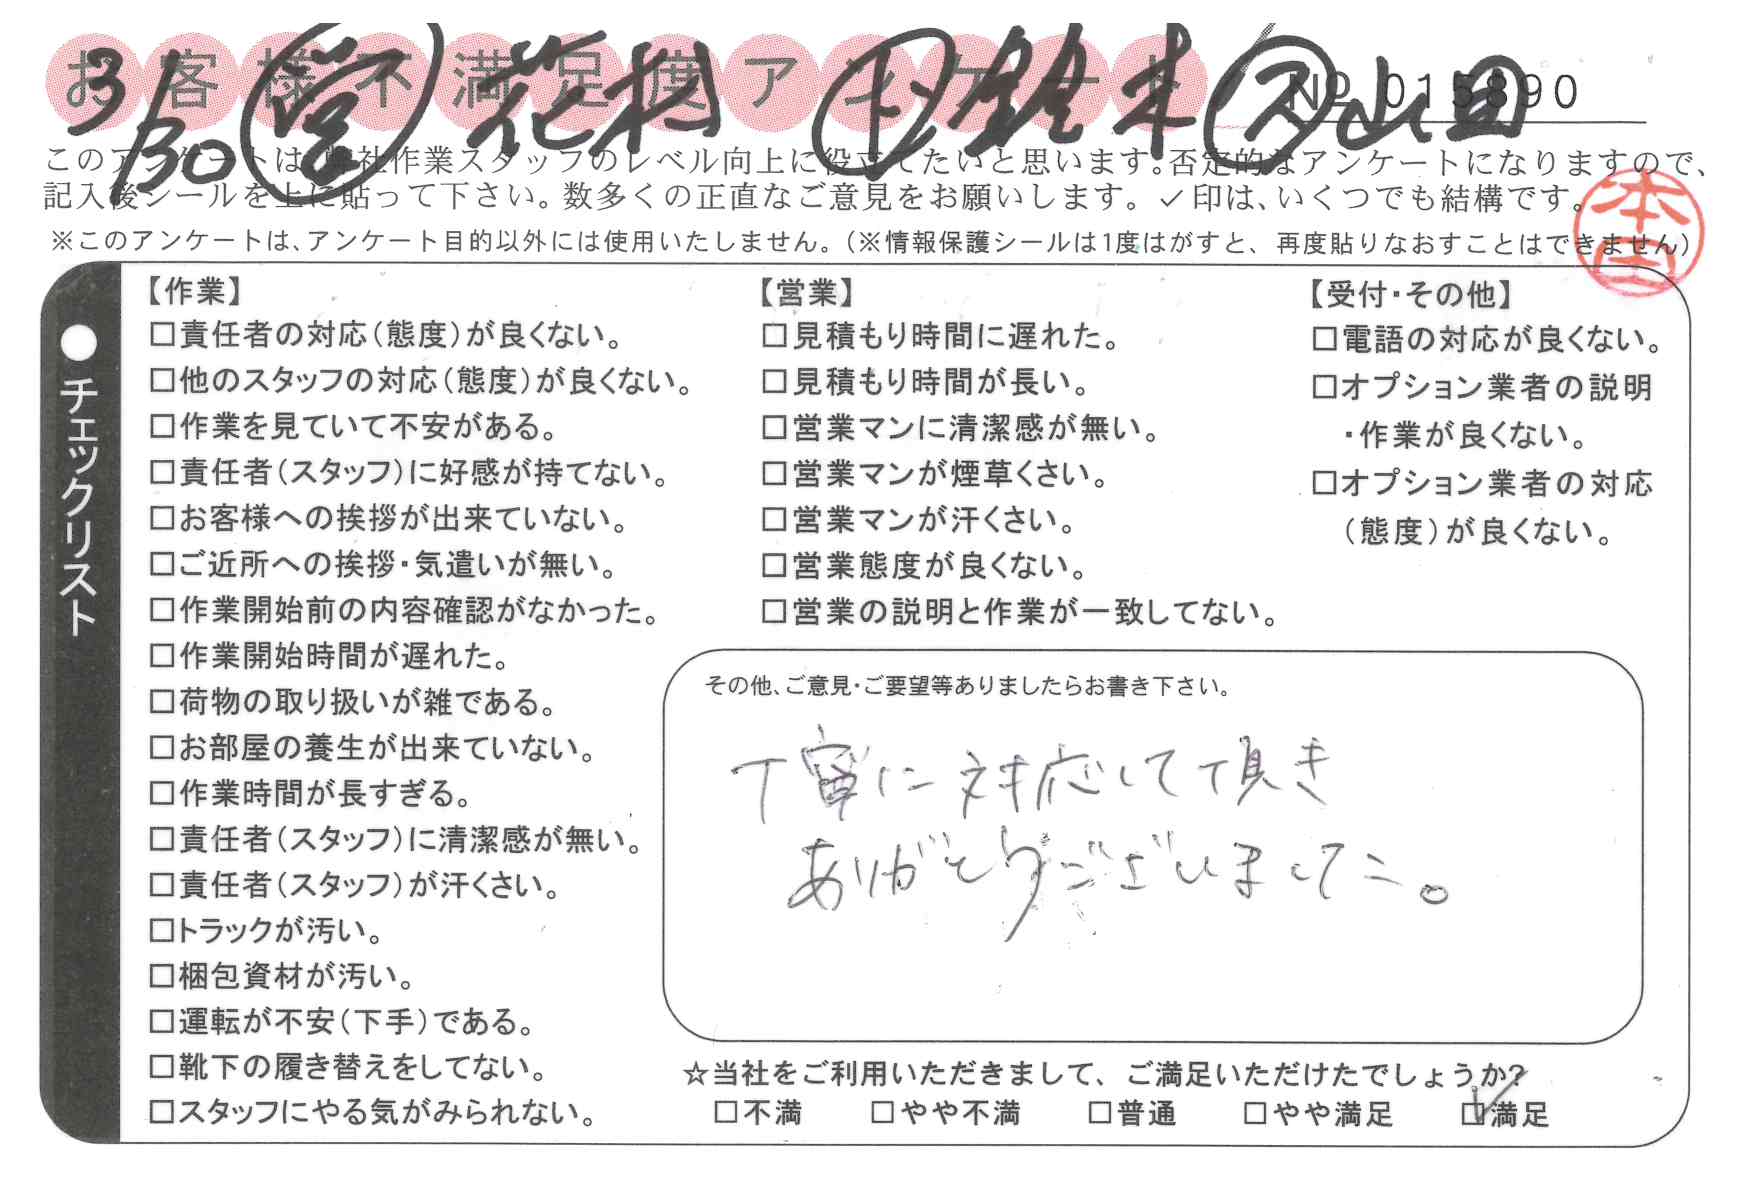 お客様不満足度アンケート
3/30 営 花村 下鈴木 ア山田
No 015890
このアンケートは、弊社作業スタッフのレベル向上に役立てたいと思います。否定的なアンケートになりますので、
記入後シールを上に貼って下さい。数多くの正直なご意見をお願いします。✓印は、いくつでも結構です。
※このアンケートは、アンケート目的以外には使用いたしません。(※情報保護シールは1度はがすと、再度貼りなおすことはできません)
●チェックリスト
【作業】
□責任者の対応(態度)が良くない。
□他のスタッフの対応(態度)が良くない。
□作業を見ていて不安がある。
□責任者(スタッフ)に好感が持てない。
□お客様への挨拶が出来ていない。
□ご近所への挨拶・気遣いが無い。
□作業開始前の内容確認がなかった。
□作業開始時間が遅れた。
□荷物の取り扱いが雑である。
□お部屋の養生が出来ていない。
□作業時間が長すぎる。
□責任者(スタッフ)に清潔感が無い。
□責任者(スタッフ)が汗くさい。
□トラックが汚い。
□梱包資材が汚い。
□運転が不安(下手)である。
□靴下の履き替えをしてない。
□スタッフにやる気がみられない。
【営業】
□見積もり時間に遅れた。
□見積もり時間が長い。
□営業マンに清潔感が無い。
□営業マンが煙草くさい。
□営業マンが汗くさい。
□営業態度が良くない。
□営業の説明と作業が一致してない。
【受付・その他】
□電話の対応が良くない。
□オプション業者の説明
・作業が良くない。
□オプション業者の対応
(態度)が良くない。
その他、ご意見・ご要望等ありましたらお書き下さい。
丁寧に対応して頂き
ありがとうございました。
☆当社をご利用いただきまして、ご満足いただけたでしょうか?
□不満 □やや不満 □普通 □やや満足 ☑満足